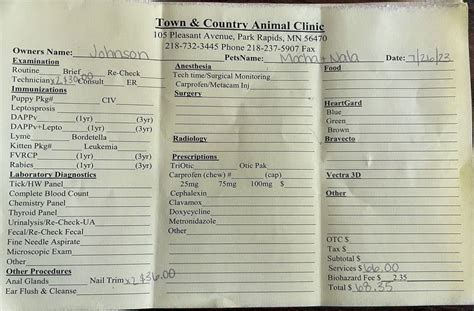 Town & Country Animal Clinic
105 Pleasant Avenue, Park Rapids, MN 56470
218-732-3445 Phone 218-237-5907 Fax
Owners Name: Johnson PetsName: Nala Date: 7/26/23
Examination
Routine Brief Re-Check
Technician x2 $30.00 Consult ER
Immunizations
Puppy Pkg# CIV
Leptosprosis
DAPPv (1yr) (3yr)
DAPPv+Lepto (1yr) (3yr)
Lyme Bordetella
Kitten Pkg# Leukemia
FVRCP (1yr) (3yr)
Rabies (1yr) (3yr)
Laboratory Diagnostics
Tick/HW Panel
Complete Blood Count
Chemistry Panel
Thyroid Panel
Urinalysis/Re-Check-UA
Fecal/Re-Check Fecal
Fine Needle Aspirate
Microscopic Exam
Other
Other Procedures
Anal Glands Nail Trim x2 $36.00
Ear Flush & Cleanse
Anesthesia
Tech time/Surgical Monitoring
Carprofen/Metacam Inj
Surgery
Radiology
Prescriptions
TriOtic Otic Pak
Carprofen (chew) # (cap)
25mg 75mg 100mg $
Cephalexin
Clavamox
Doxycycline
Metronidazole
Other
Food
HeartGard
Blue
Green
Brown
Bravecto
Vectra 3D
Other
OTC $
Tax $
Subtotal $
Services $ 66.00
Biohazard Fee $ 2.35
Total $ 68.35